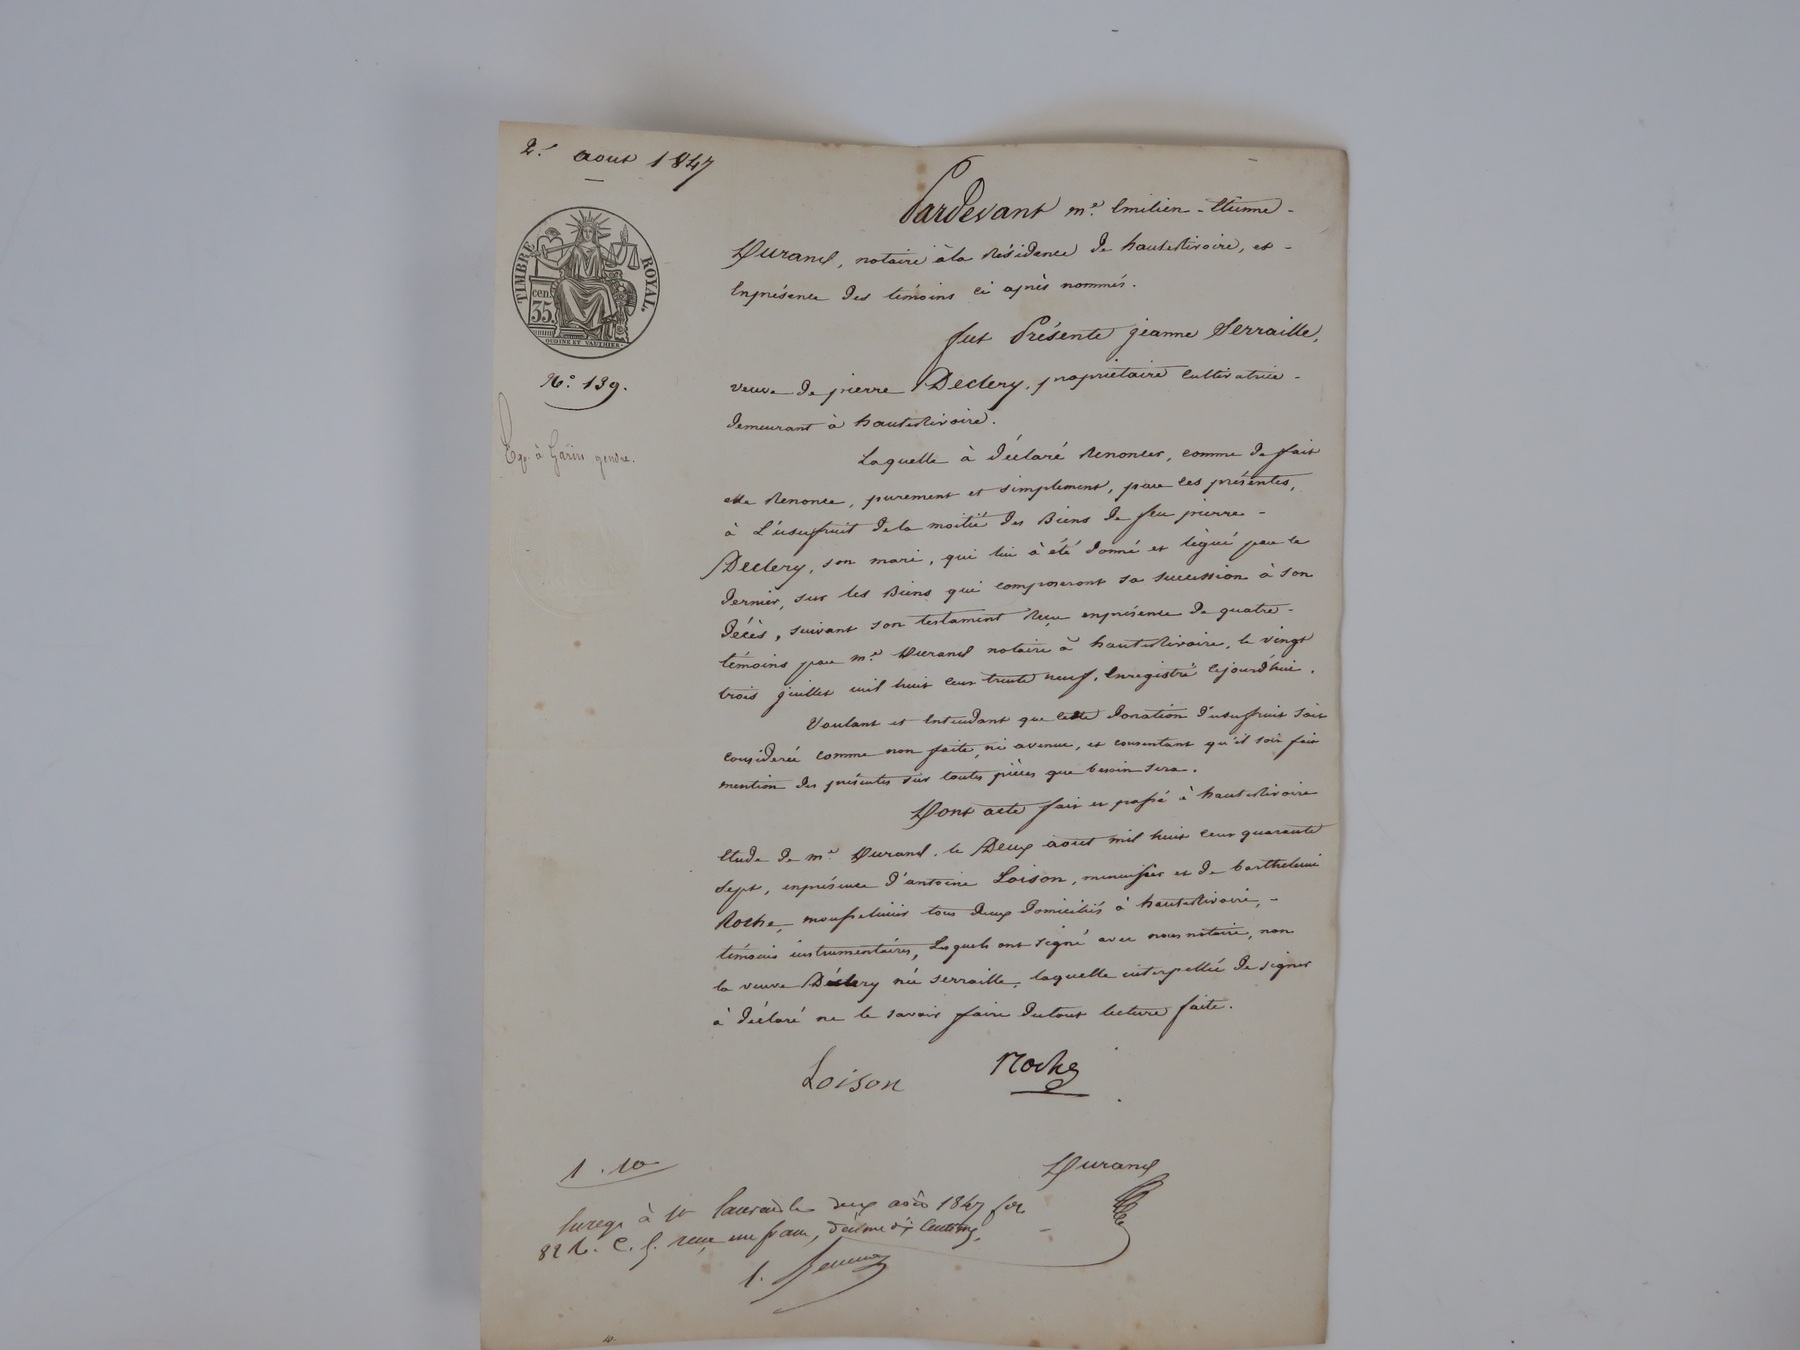 2. aout 1847
TIMBRE ROYAL.
cen. 35.
OUDINÉ ET VAUTHIER.
N.º 139.
à Garin gendre.
Pardevant m.e Emilien - Etienne -
Durand, notaire à la Résidence de hauterivoire, et -
Enprésence des témoins ci après nommés.
fut Présente jeanne Serraille,
veuve de pierre Declery, propriétaire cultivatrice -
demeurant à hauterivoire.
Laquelle à déclaré Renoncer, comme de fait
elle Renonce, purement et simplement, par ces présentes,
à L'usufruit dela moitié des Biens de feu pierre -
Declery, son mari, qui lui à été donné et légué par ce
dernier, sur les Biens qui composeront sa succession à son
décès, suivant son testament Reçu enprésence de quatre -
témoins par m.e Durand notaire à hauterivoire, le vingt
trois juillet mil huit cent trente neuf, Enregistré cejourd'hui.
Voulant et Entendant que cette donation d'usufruit soit
considerée comme non faite, ni avenue, et consentant qu'il soit fait
mention des présentes sur toutes pièces que besoin sera.
Dont acte fait et passé à hauterivoire
Etude de m.e Durand, le Deux aout mil huit cent quarante
sept, enprésence d'antoine Loison, menuisier et de barthelemi
Roche, mousselinier tous deux domiciliés à hauterivoire, -
témoins instrumentaires, Lesquels ont signé avec nous notaire, non
la veuve Déclery née serraille, laquelle interpellée de signer
à déclaré ne le savoir faire dutout lecture faite.
Loison Roche
1 . 10
Durand
Enregé à St Laurent le deux août 1847 fol
82 R. C. 5. reçu un franc, décime dix centimes.